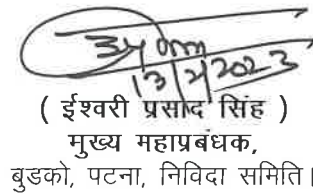 13/2/2023
( ईश्वरी प्रसाद सिंह )
मुख्य महाप्रबंधक,
बुडको, पटना, निविदा समिति।